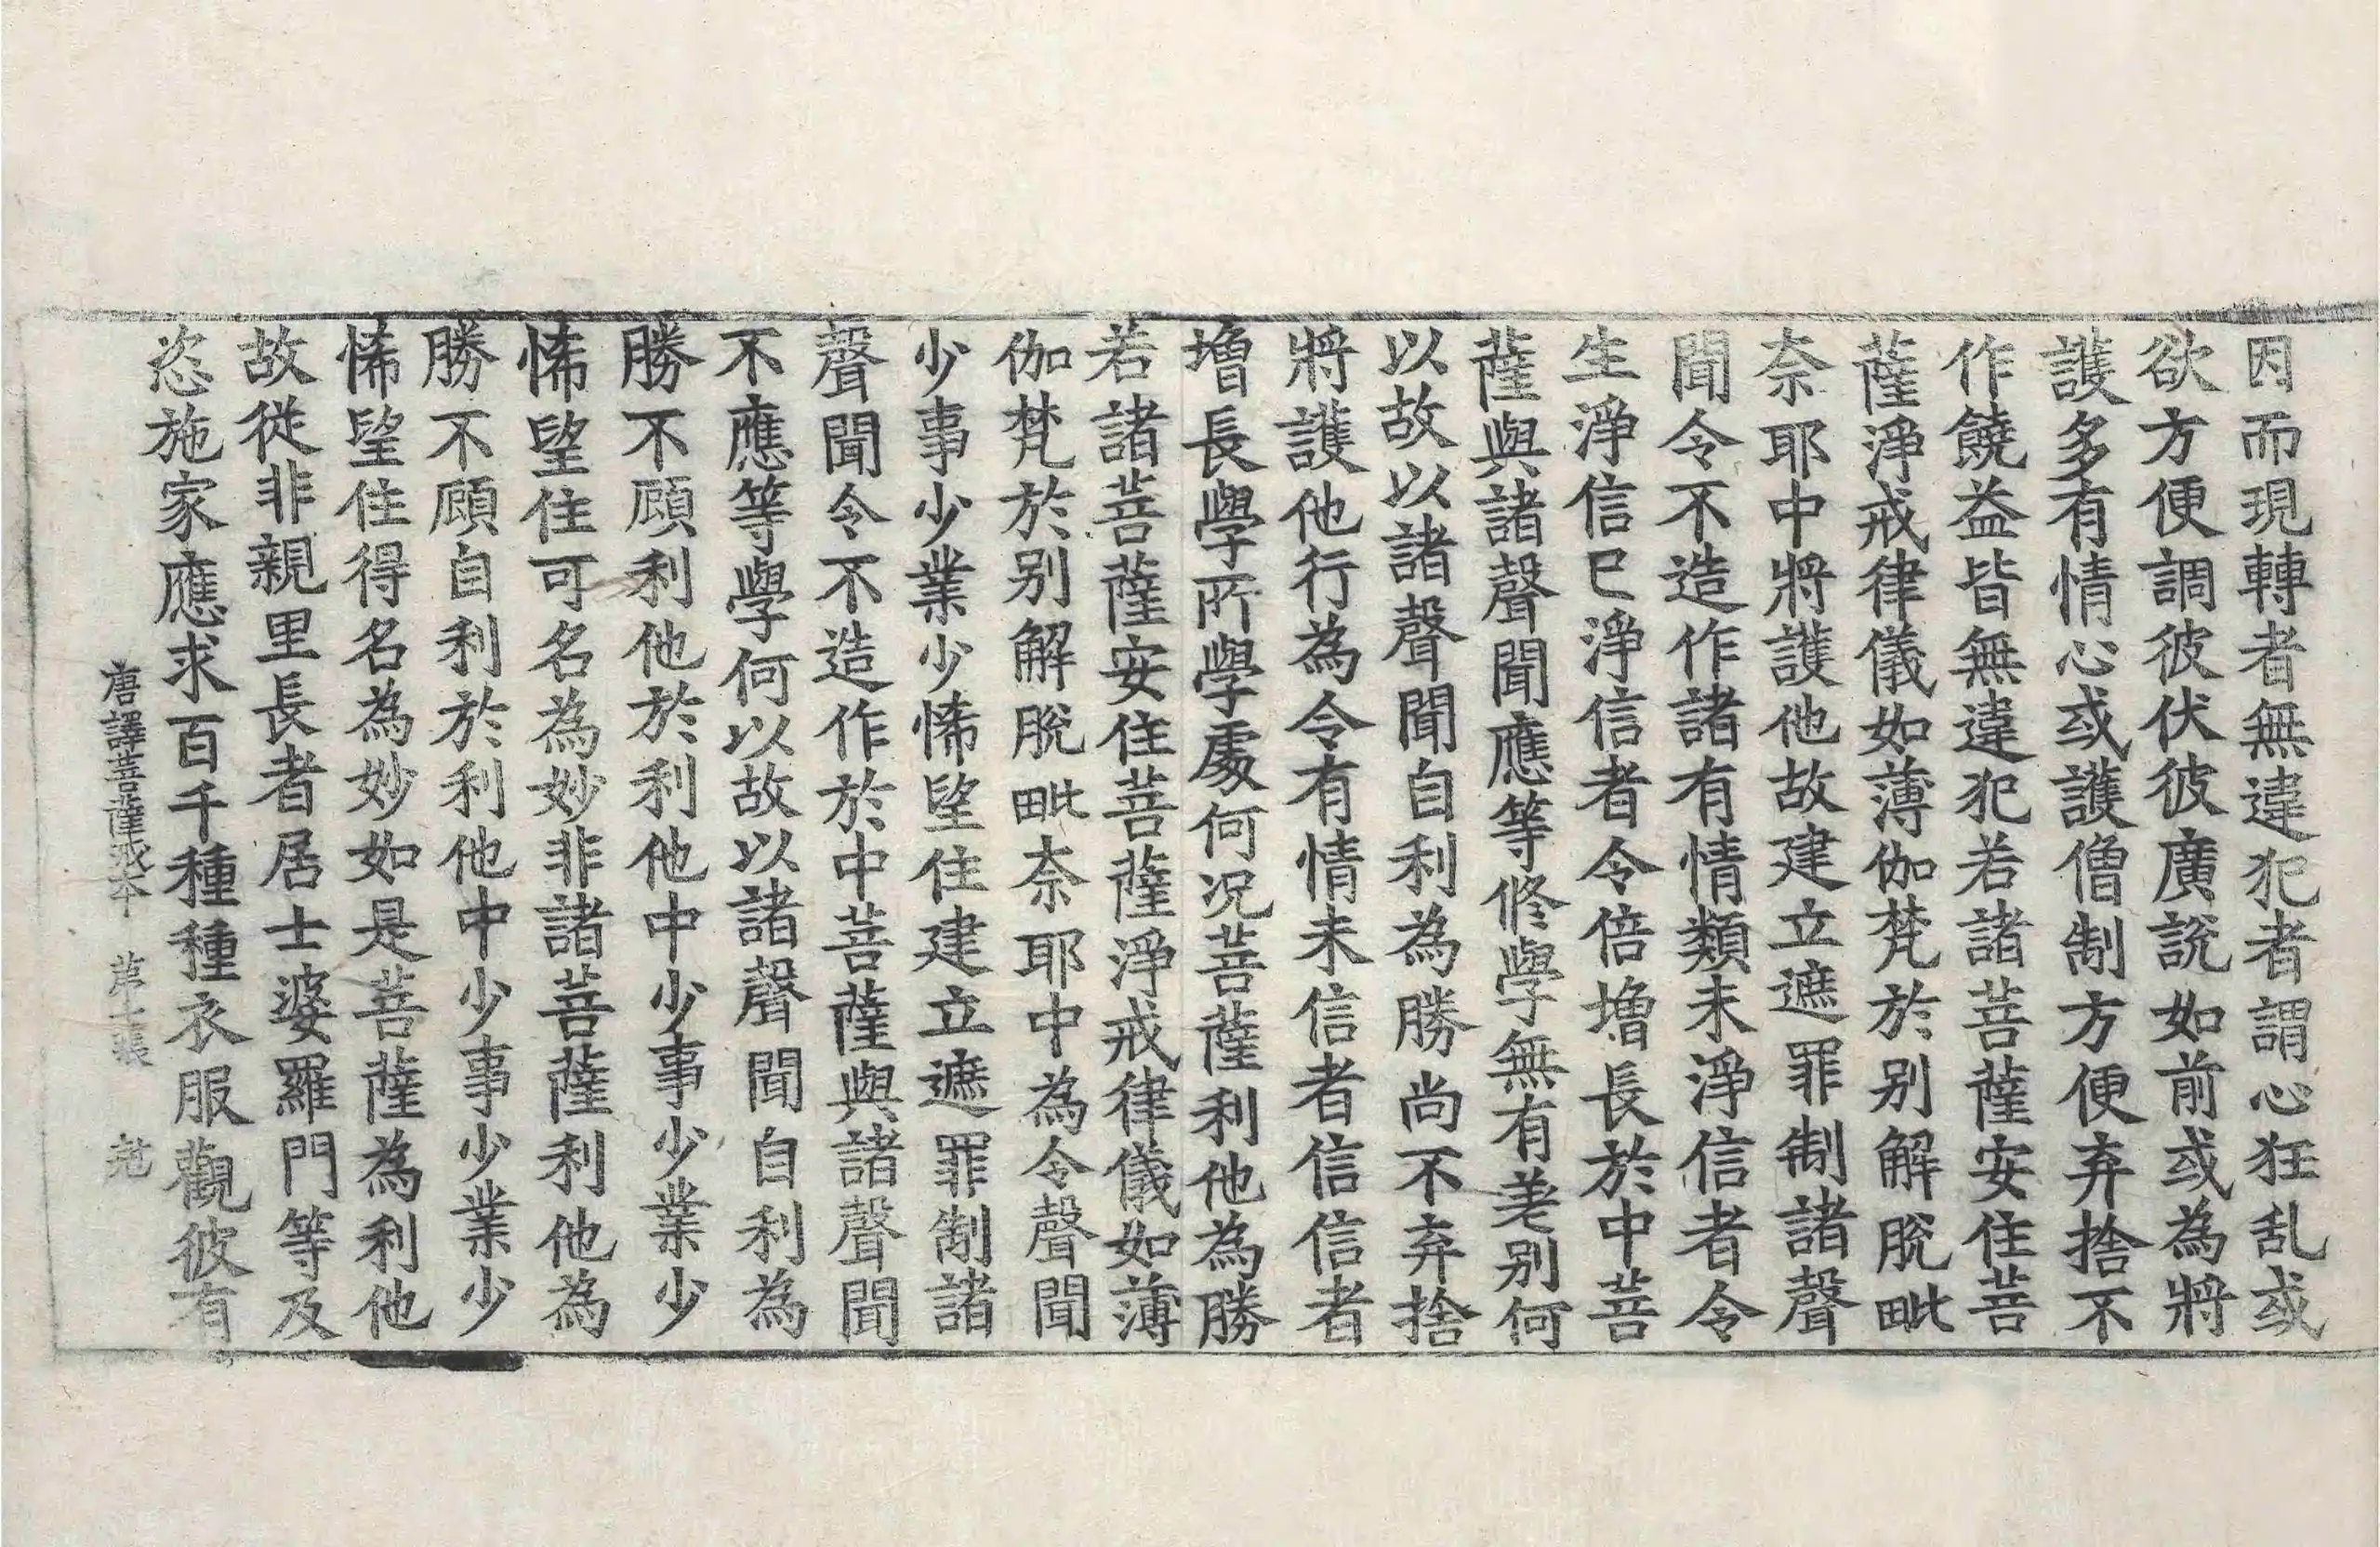 因而現轉者無違犯者謂心狂乱或
欲方便調彼伏彼廣說如前或為將
護多有情心或護僧制方便弃捨不
作饒益皆無違犯若諸菩薩安住菩
薩淨戒律儀如薄伽梵於别解脫毗
奈耶中將護他故建立遮罪制諸聲
聞令不造作諸有情類未淨信者令
生淨信已淨信者令倍增長於中菩
薩與諸聲聞應等修學無有差别何
以故以諸聲聞自利為勝尚不弃捨
將護他行為令有情未信者信信者
增長學所學處何况菩薩利他為勝
若諸菩薩安住菩薩淨戒律儀如薄
伽梵於别解脫毗奈耶中為令聲聞
少事少業少悕望住建立遮罪制諸
聲聞令不造作於中菩薩與諸聲聞
不應等學何以故以諸聲聞自利為
勝不顧利他於利他中少事少業少
悕望住可名為妙非諸菩薩利他為
勝不顧自利於利他中少事少業少
悕望住得名為妙如是菩薩為利他
故從非親里長者居士婆羅門等及
恣施家應求百千種種衣服觀彼有
唐譯菩薩戒本 第十張